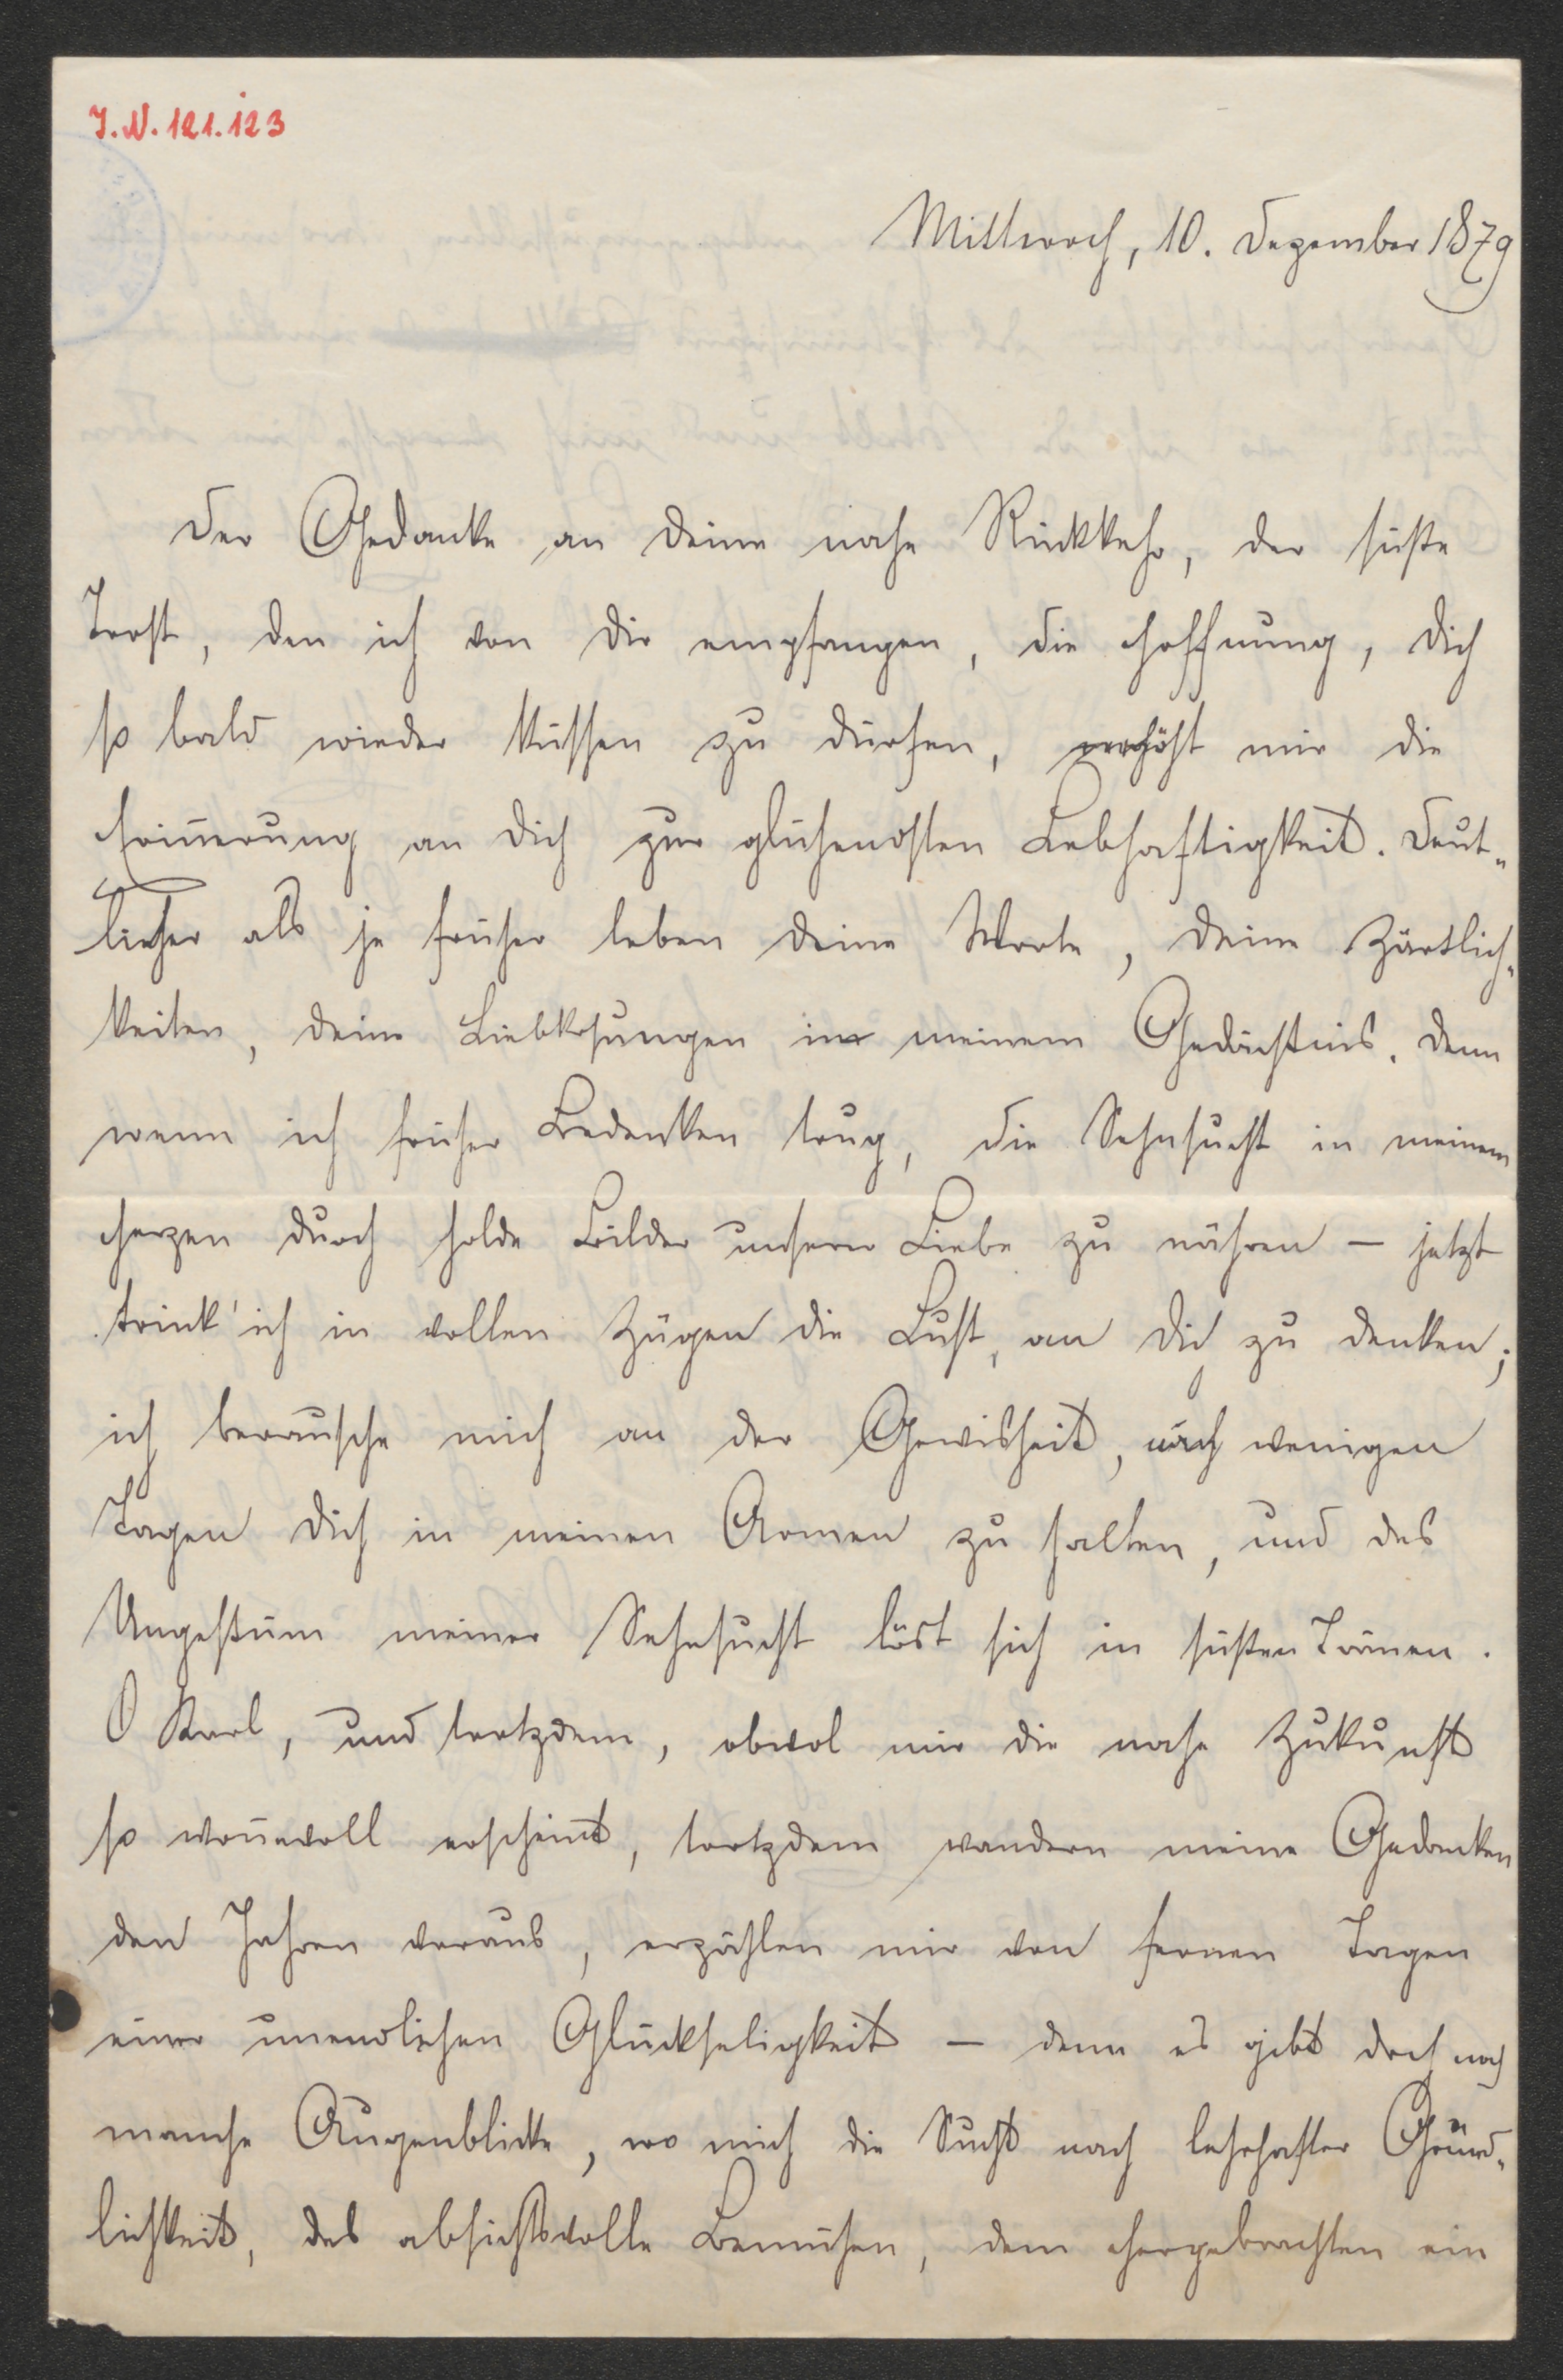 I.N. 121.123
Mittwoch, 10. Dezember 1879
Der Gedanke an deine nahe Rückkehr, der süße
Trost, den ich von dir empfangen, die Hoffnung, dich
so bald wieder küssen zu dürfen, erhöht mir die
Erin̄erung an dich zur glühendsten Lebhaftigkeit. Deut„
licher als je früher leben deine Worte, deine Zärtlich„
keiten, deine Liebkosungen in meinem Gedächtnis. Denn
wenn ich früher Bedenken trug, die Sehnsucht in meinem
Herzen durch holde Bilder unserer Liebe zu nähren — jetzt
trink' ich in vollen Zügen die Lust, an dich zu denken;
ich berausche mich an der Gewisheit, nach wenigen
Tagen dich in meinen Armen zu halten, und das
Ungestüm meiner Sehnsucht löst sich in süßen Tränen.
O Karl, und trotzdem, obwol mir die nahe Zukunft
so won̄evoll erscheint, trotzdem wandern meine Gedanken
den Jahren voraus, erzählen mir von fernen Tagen
einer unendlichen Glückseligkeit — denn es gibt doch noch
manche Augenblicke, wo mich die Sucht nach lehrhafter Gründ„
lichkeit, das absichtsvolle Bemühen, dem Hergebrachten ein